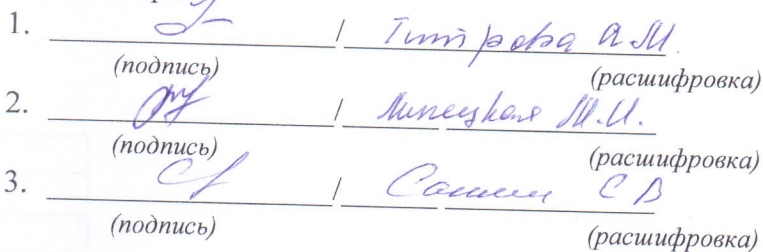 1. / Титрова А.М.
(подпись) (расшифровка)
2. / Липецкая М.И.
(подпись) (расшифровка)
3. / С В
(подпись) (расшифровка)